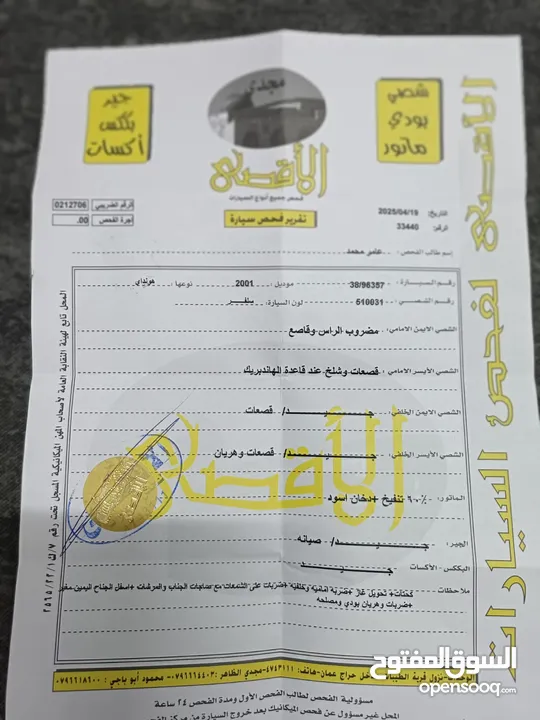 شصي
بودي
ماتور
مجدي
جير
بكس
أكسات
الأقصى
فحص جميع أنواع السيارات
تقرير فحص سيارة
التاريخ: 2025/04/19
الرقم: 33440
الرقم الضريبي 0212706
اجرة الفحص .00
إسم طالب الفحص: عامر محمد
رقم السيارة: 38/96387 موديل: 2001 نوعها: هونداي
رقم الشصي: 510031 لون السيارة: سلفر
الشصي الايمن الامامي: مضروب الراس وقاصع
الشصي الأيسر الامامي: قصعات وشلخ عند قاعدة الهاندبريك
الشصي الايمن الخلفي: جيد/ قصعات
الشصي الأيسر الخلفي: جيد/ قصعات وهريان
الماتور: ٦٠% تنفيخ +دخان اسود
الجير: جيد/ صيانه
البكس الأكسات: جيد
ملاحظات: كحتات+ تحويل غاز +ضربة امامية وخلفية +ضربات على الشمعات مع صاجات الجناب والمرشات + اسفل الجناح اليمين مغير
+ضربات وهريان بودي ومصلحه
الأقصى
الأقصى لفحص السيارات
المحل تابع لهيئة النقابة العامة لأصحاب المهن الميكانيكية المسجل تحت رقم
الوحدات-نزول قرية الطيبات-داخل حراج عمان-هاتف: ٤٧٤٣١١١-مجدي الظاهر: ٠٧٩٦٦١٤٤٠٣- محمود أبو ياجي: ٠٧٩٦٦١٨٦٠٠
مسؤولية الفحص لطالب الفحص الأول ومدة الفحص ٢٤ ساعة
المحل غير مسؤول عن فحص الميكانيك بعد خروج السيارة من مركز
السوق المفتوح
opensooq.com